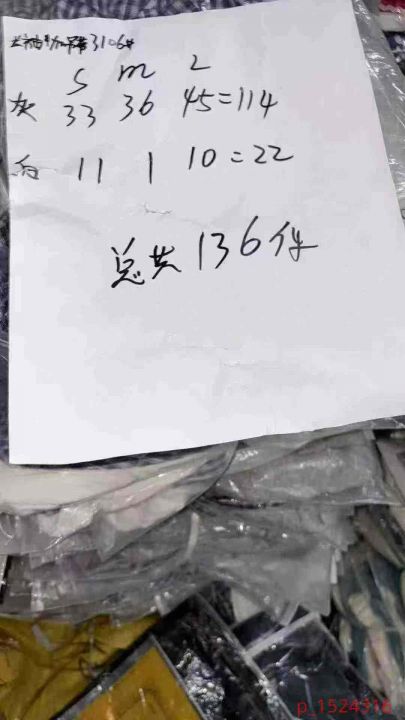 3106#
S M L
灰 33 36 45=114
白 11 1 10=22
总共136件
p_1524316